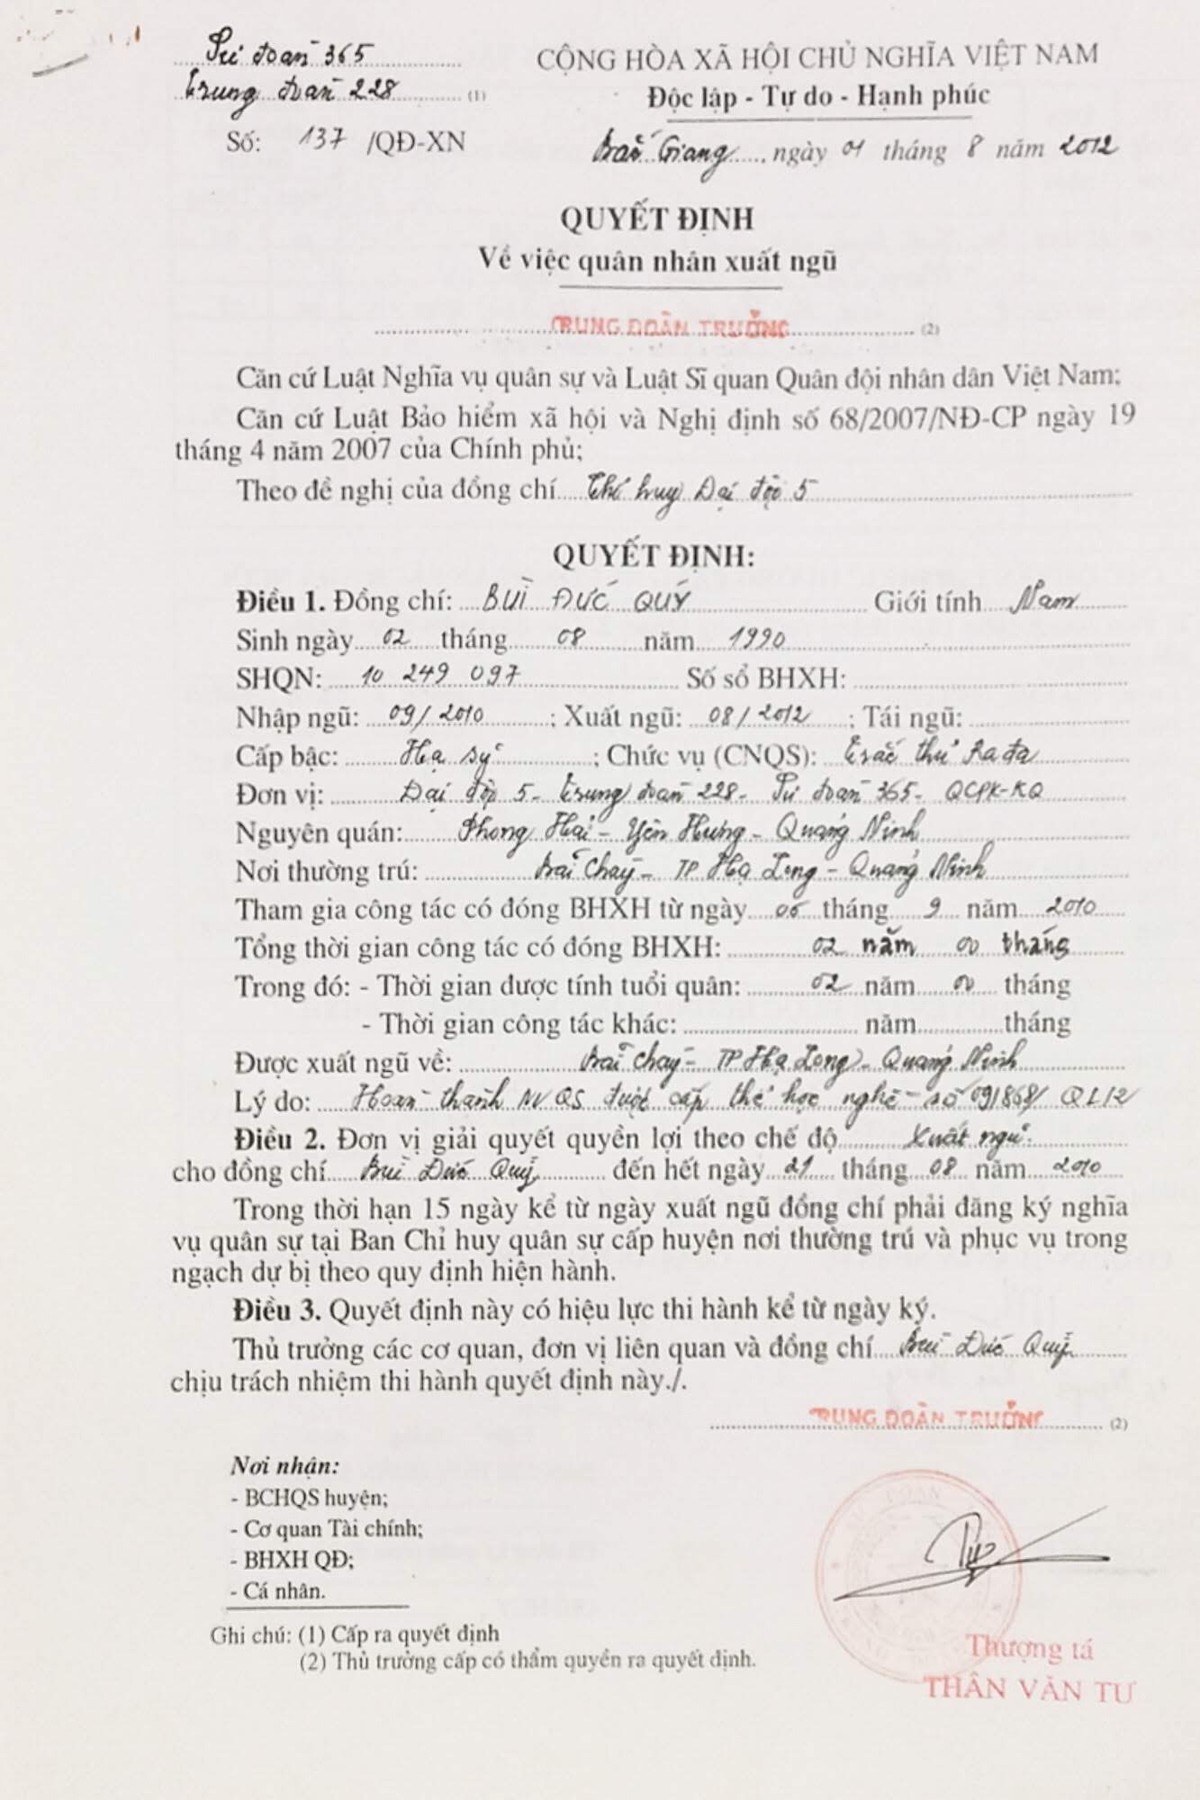 Sư đoàn 365
Trung đoàn 228 (1)
Số: 137 /QĐ-XN
CỘNG HÒA XÃ HỘI CHỦ NGHĨA VIỆT NAM
Độc lập - Tự do - Hạnh phúc
Bắc Giang, ngày 01 tháng 8 năm 2012
QUYẾT ĐỊNH
Về việc quân nhân xuất ngũ
TRUNG ĐOÀN TRƯỞNG (2)
Căn cứ Luật Nghĩa vụ quân sự và Luật Sĩ quan Quân đội nhân dân Việt Nam;
Căn cứ Luật Bảo hiểm xã hội và Nghị định số 68/2007/NĐ-CP ngày 19
tháng 4 năm 2007 của Chính phủ;
Theo đề nghị của đồng chí Chỉ huy Đại đội 5
QUYẾT ĐỊNH:
Điều 1. Đồng chí: BÙI ĐỨC QUÝ Giới tính Nam
Sinh ngày 02 tháng 08 năm 1990
SHQN: 10 249 097 Số sổ BHXH:
Nhập ngũ: 09/2010 ; Xuất ngũ: 08/2012 ; Tái ngũ:
Cấp bậc: Hạ sỹ ; Chức vụ (CNQS): Trắc thủ Ra đa
Đơn vị: Đại đội 5 - Trung đoàn 228 - Sư đoàn 365 - QCPK-KQ
Nguyên quán: Phong Hải - Yên Hưng - Quảng Ninh
Nơi thường trú: Bãi Cháy - TP Hạ Long - Quảng Ninh
Tham gia công tác có đóng BHXH từ ngày 06 tháng 9 năm 2010
Tổng thời gian công tác có đóng BHXH: 02 năm 00 tháng
Trong đó: - Thời gian được tính tuổi quân: 02 năm 00 tháng
- Thời gian công tác khác: năm tháng
Được xuất ngũ về: Bãi Cháy - TP Hạ Long - Quảng Ninh
Lý do: Hoàn thành NVQS được cấp thẻ học nghề số 091868/ QL12
Điều 2. Đơn vị giải quyết quyền lợi theo chế độ Xuất ngũ
cho đồng chí Bùi Đức Quý đến hết ngày 21 tháng 08 năm 2010
Trong thời hạn 15 ngày kể từ ngày xuất ngũ đồng chí phải đăng ký nghĩa
vụ quân sự tại Ban Chỉ huy quân sự cấp huyện nơi thường trú và phục vụ trong
ngạch dự bị theo quy định hiện hành.
Điều 3. Quyết định này có hiệu lực thi hành kể từ ngày ký.
Thủ trưởng các cơ quan, đơn vị liên quan và đồng chí Bùi Đức Quý
chịu trách nhiệm thi hành quyết định này./.
TRUNG ĐOÀN TRƯỞNG (2)
Nơi nhận:
- BCHQS huyện;
- Cơ quan Tài chính;
- BHXH QĐ;
- Cá nhân.
Ghi chú: (1) Cấp ra quyết định
(2) Thủ trưởng cấp có thẩm quyền ra quyết định.
Thượng tá
THÂN VĂN TƯ